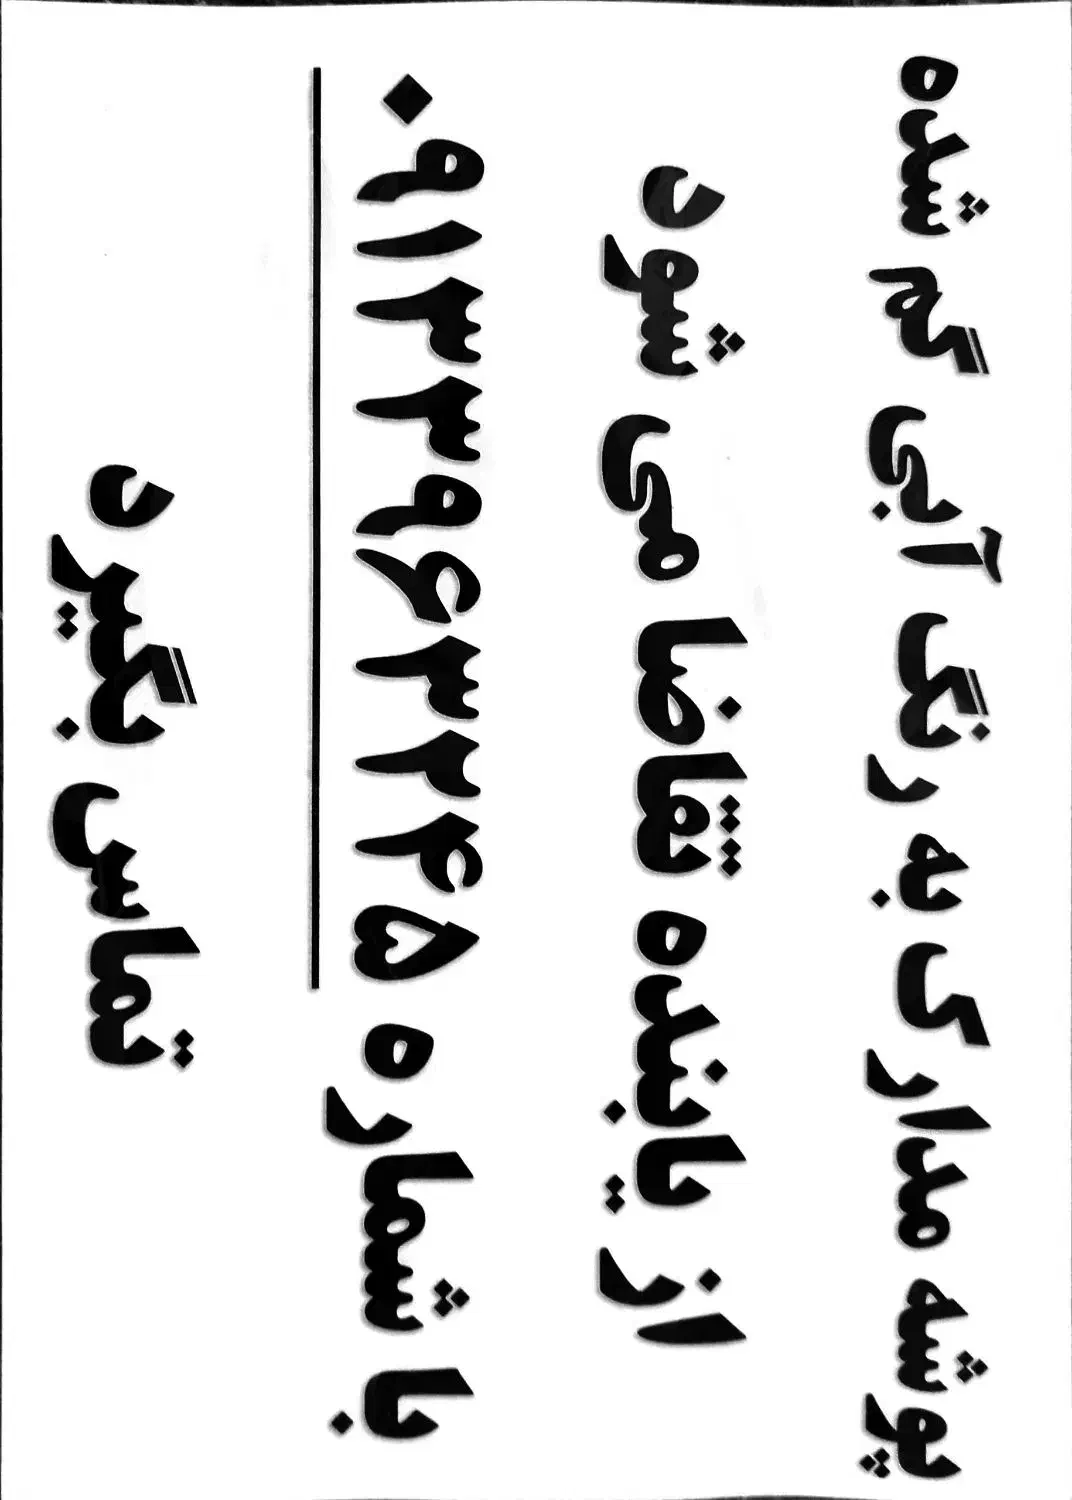 پوشه مدارک به رنگ آبی گم شده
از یابنده تقاضا می شود
با شماره ۰۹۱۳۳۹۶۳۲۴۵
تماس بگیرد